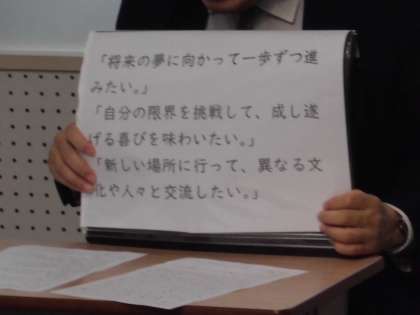 「将来の夢に向かって一歩ずつ進
みたい。」
「自分の限界を挑戦して、成し遂
げる喜びを味わいたい。」
「新しい場所に行って、異なる文
化や人々と交流したい。」